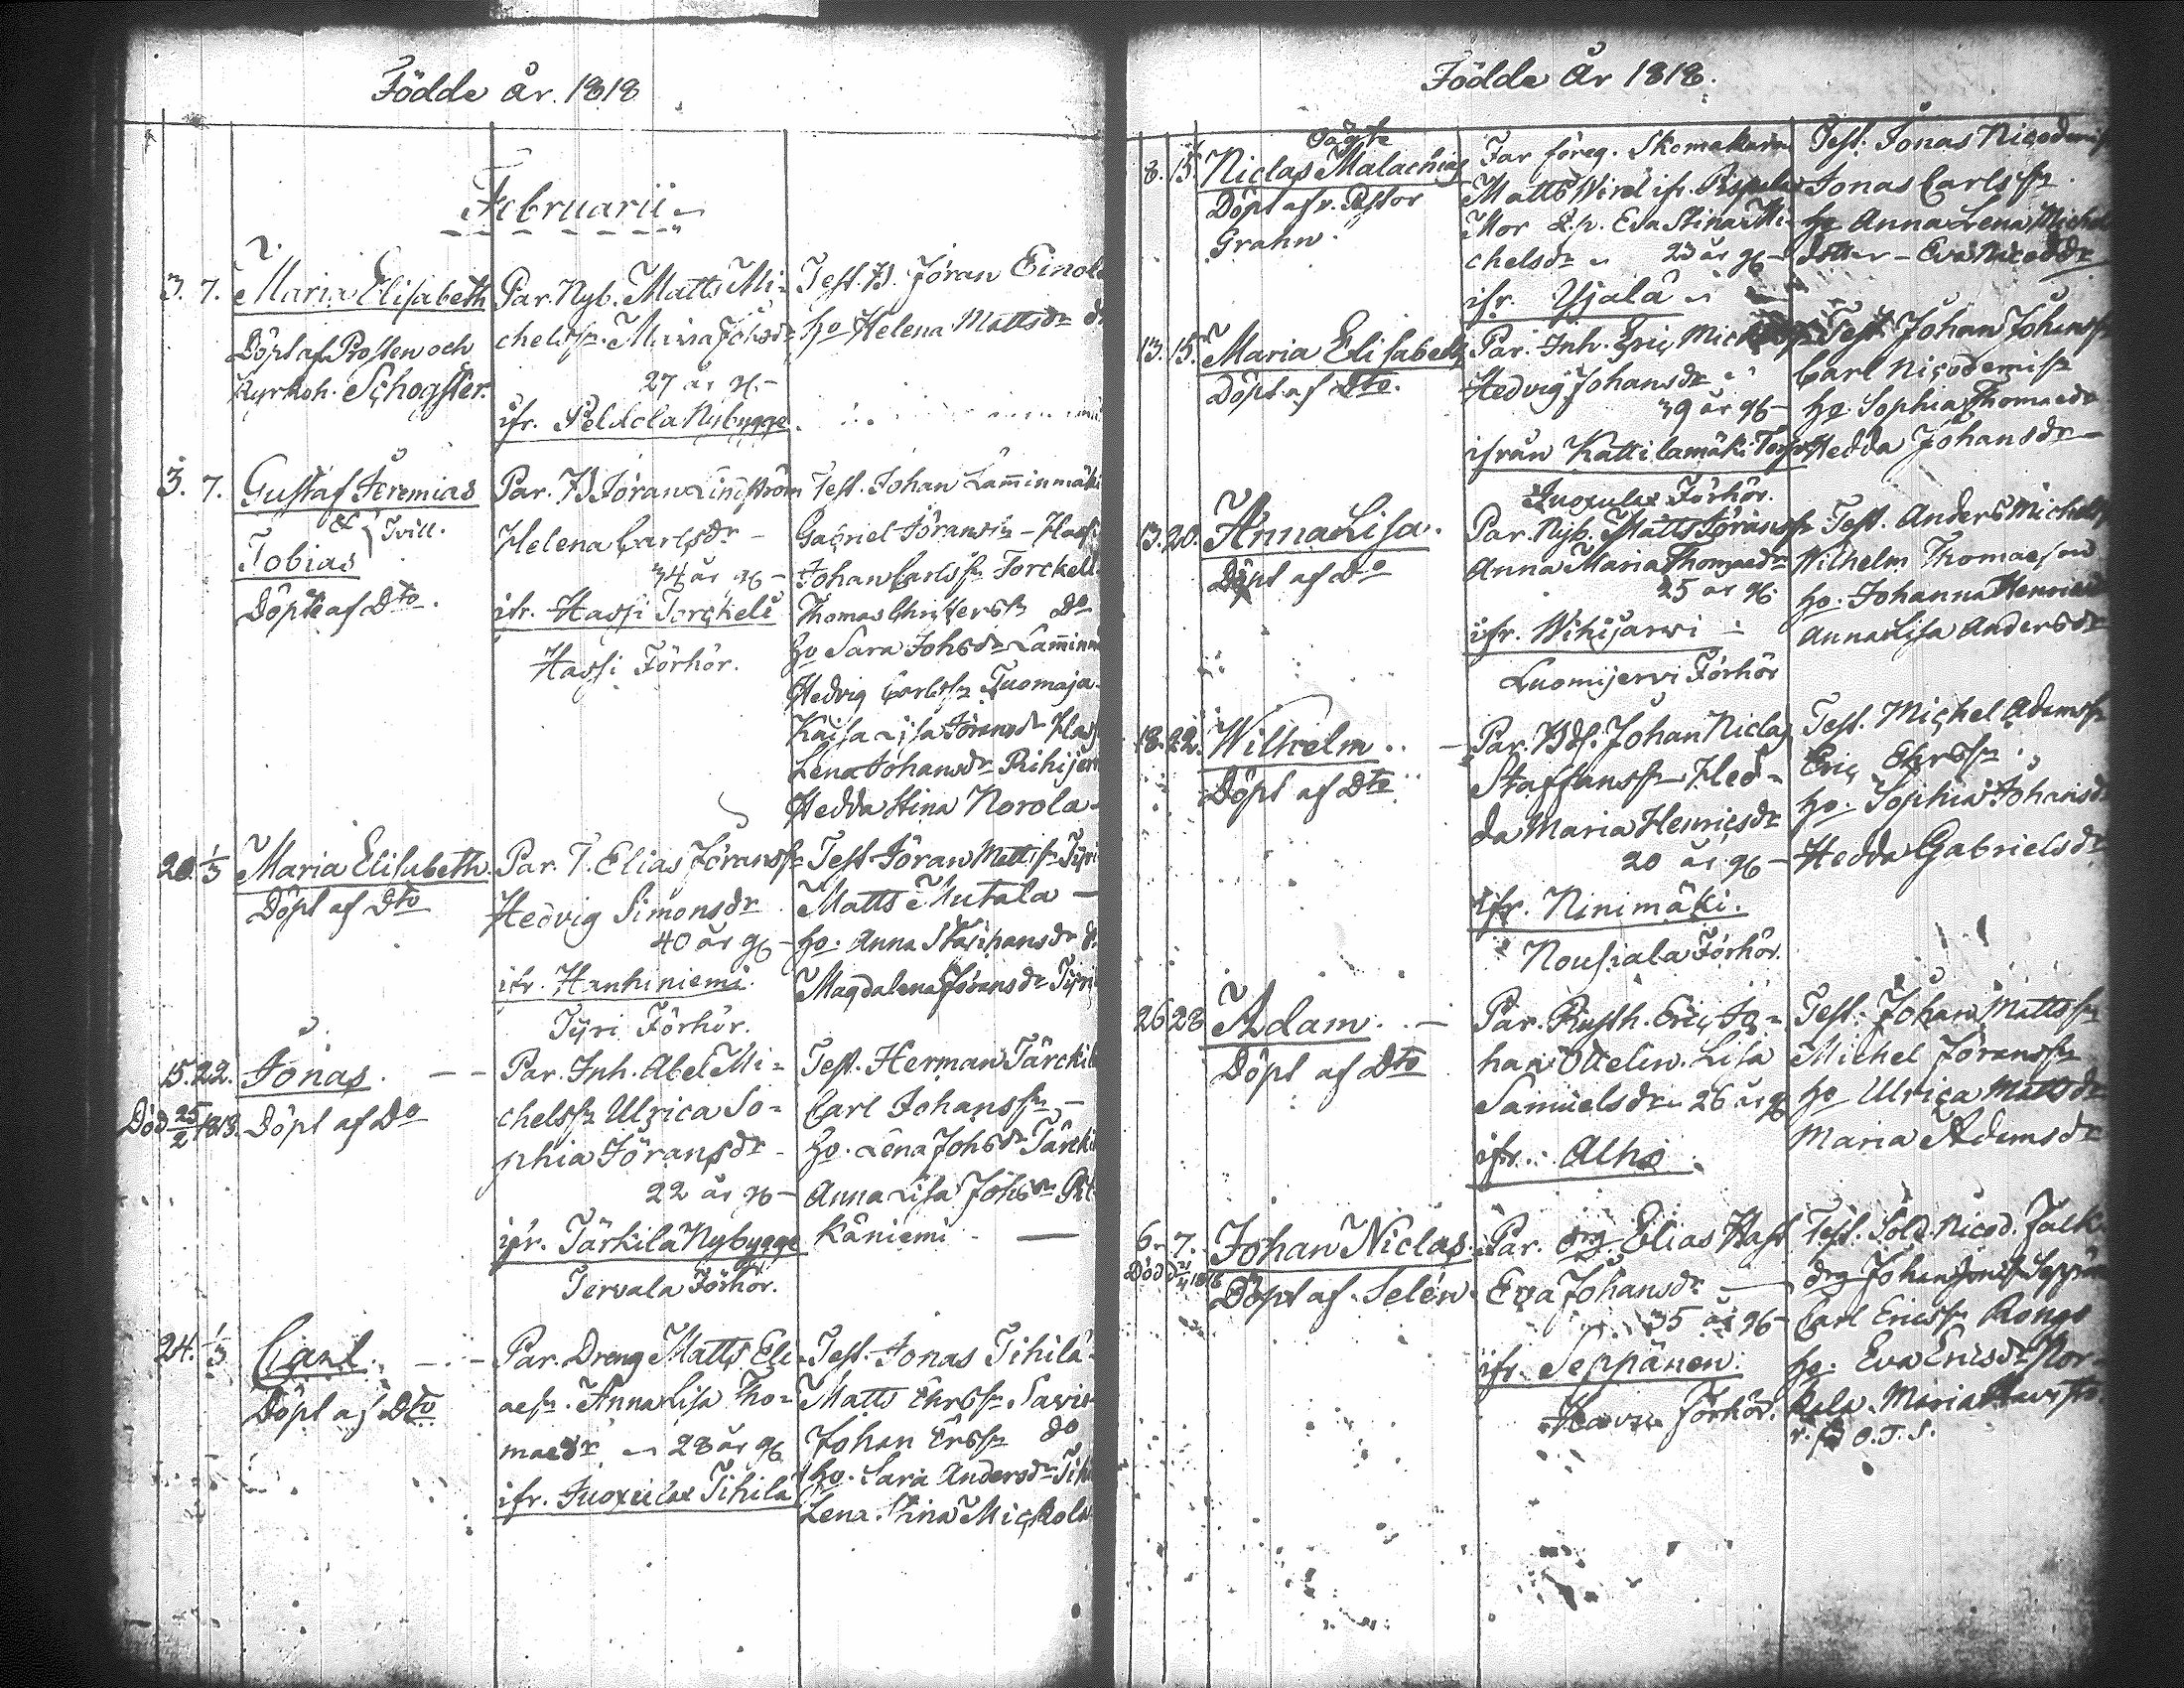 Födde år. 1818
Februarii
3. 7. Maria Elisabeth
Döpt af Prosten och
Kyrkoh. Schogster.
Par. Nyb. Matts Mi-
chelss. Maria Johsdr
27 år g.
ifr. Peldola Nybygge
Test. B. Jöran Einola
ho Helena Mattsdr
3. 7. Gustaf Jeremias
& Tvill.
Tobias
Döpte af Dto.
Par. B Jöran Lindström
Helena Carlsdr
34 år g.
ifr. Hassi Torckeli
Hassi Förhör.
Test. Johan Lamminmäki
Gabriel Jöranss. Hassi
Johan Carlss. Torckeli
Thomas Christerss. Do
ho Sara Johsdr Lammin
Hedvig Carlss. Tuomaja
Kaisa Lisa Jöransdr Hass
Lena Johansdr Rihijerv
Hedda Stina Norola
20. 1/3 Maria Elisabeth.
Döpt af Dto
Par. T. Elias Jöranss.
Hedvig Simonsdr
40 år g.
ifr. Hanhiniemi.
Tyri Förhör.
Test. Jöran Mattss. Tyri
Matts Mutala
ho. Anna Staphansdr
Magdalena Jöransdr Tyri
15. 22. Jonas.
Död 25/2 1818. Döpt af Do
Par. Inh. Abel Mi-
chelss. Ulrica So-
phia Jöransdr
22 år g.
ifr. Tärkilä Nybygge
Tervala Förhör.
Test. Herman Tärckilä
Carl Johanss.
ho. Lena Johsdr Tärcki
Anna Lisa Johsdr Pit
käniemi
24. 1/3 Carl.
Döpt af Dto
Par. Dreng Matts Eli-
aes. Anna Lisa Tho-
maedr 28 år g.
ifr. Juoxula Tihilä
Test. Jonas Tihilä
Matts Ersss. Savi
Johan Ersss. do
ho. Sara Andersdr Tih
Lena Stina Mickola
Födde År 1818.
oägte
8. 15. Niclas Malachias
Döpt af v. Pastor
Grahn.
Far föreg. Skomakarn
Matts Wird ifr.
Mor Eva Stina Mi-
chelsdr 23 år g.
ifr. Yjalä
Test. Jonas Nicodemis
Jonas Carlss.
ho Anna Lena Michel
dotter - Eva Nicoddr
13. 15. Maria Elisabeth
Döpt af Dto.
Par. Inh. Eric Mickelss.
Hedvig Johansdr
39 år g.
ifrån Kattilamäki Torp
Juoxula Förhör.
Test. Johan Johanss.
Carl Nicodemiss.
ho. Sophia Thomaedr
Hedda Johansdr
13. 20. Anna Lisa.
Döpt af Do
Par. Nyb. Matts Jöranss.
Anna Maria Thomaedr
25 år g.
ifr. Wihijarwi
Luomijervi Förhör
Test. Anders Michelss.
Wilhelm Thomaeson
ho. Johanna Henricsdr
Anna Lisa Andersdr
18. 22. Wilhelm
Döpt af Dto
Par. Bds. Johan Niclas
Staffanss. Hed-
da Maria Henricsdr
20 år g.
ifr. Ninimäki.
Nousiala Förhör.
Test. Michel Adamss.
Eric Ersss.
ho. Sophia Johansdr
Hedda Gabrielsdr
26 28 Adam.
Döpt af Dto
Par. Rusth. Eric Jo-
han Ottelin. Lisa
Samuelsdr 26 år g
ifr. Alho
Test. Johan Mattss.
Michel Jöranss.
ho Ulrica Mattsdr
Maria Adamsdr
6. 7. Johan Niclas.
Död
Döpt af Selén.
Par. drg. Elias Hass
Eva Johansdr
35 år g.
ifr. Seppänen.
Havu Förhör.
Test. Sold. Nicod. Falk
drg Johan Seppän
Carl Ericss. Rongo
ho. Eva Ericsdr Nor-
kela. Maria
O. T. S.